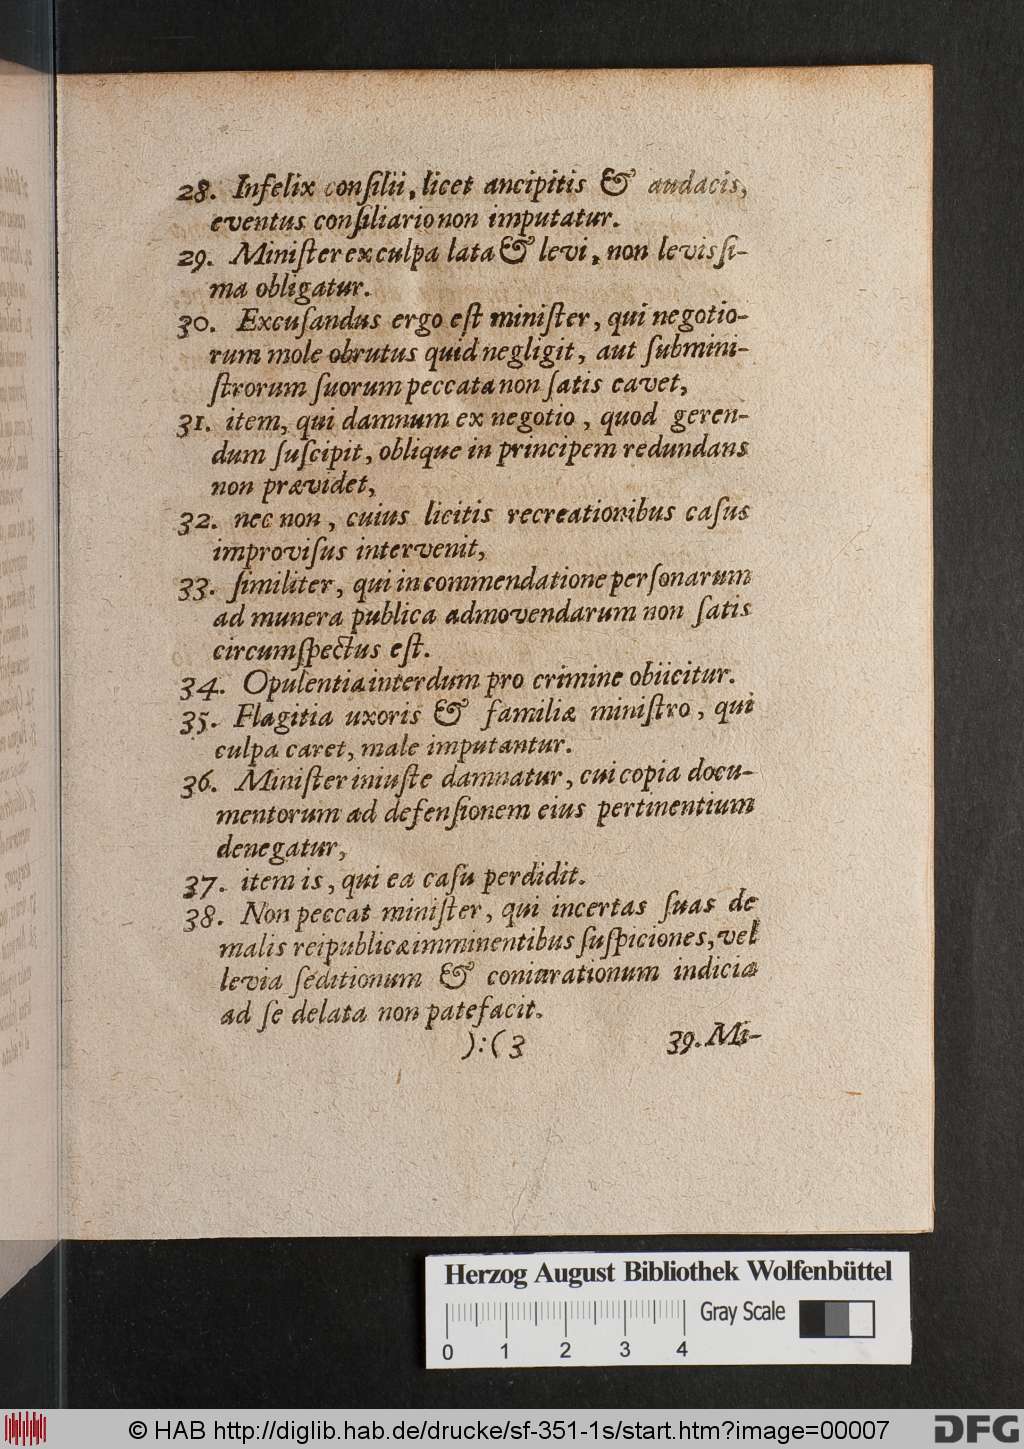 28. Infelix conſilii, licet ancipitis & audacis,
eventus conſiliario non imputatur.
29. Miniſter ex culpa lata & levi, non leviſſi-
ma obligatur.
30. Excuſandus ergo eſt miniſter, qui negotio-
rum mole obrutus quid negligit, aut ſubmini-
ſtrorum ſuorum peccata non ſatis cavet,
31. item, qui damnum ex negotio, quod geren-
dum ſuſcipit, oblique in principem redundans
non prævidet,
32. nec non, cuius licitis recreationibus caſus
improviſus intervenit,
33. ſimiliter, qui in commendatione perſonarum
ad munera publica admovendarum non ſatis
circumſpectus eſt.
34. Opulentia interdum pro crimine obiicitur.
35. Flagitia uxoris & familiæ miniſtro, qui
culpa caret, male imputantur.
36. Miniſter iniuſte damnatur, cui copia docu-
mentorum ad defenſionem eius pertinentium
denegatur,
37. item is, qui ea caſu perdidit.
38. Non peccat miniſter, qui incertas ſuas de
malis reipublicæ imminentibus ſuſpiciones, vel
levia ſeditionum & coniurationum indicia
ad ſe delata non patefacit.
):( 3 39. Mi-
Herzog August Bibliothek Wolfenbüttel
Gray Scale
0 1 2 3 4
© HAB http://diglib.hab.de/drucke/sf-351-1s/start.htm?image=00007
DFG